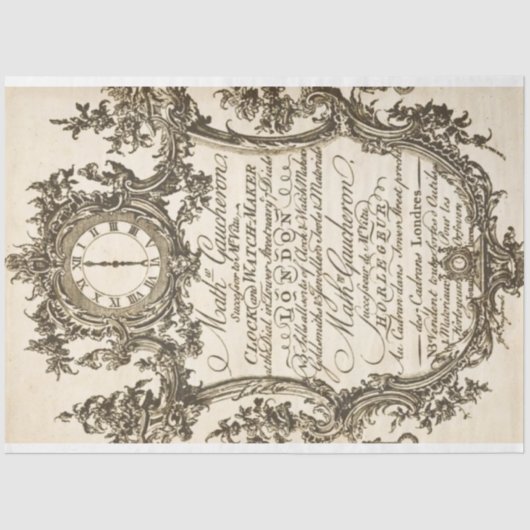 Math.w Gaucheron.
Successor to Mr. Vitu,
CLOCK and WATCH-MAKER
at the Dial in Tower Street near ye 7 Dials
LONDON
Sells all sorts of Clock & Watch Makers
Goldsmiths & Jewellers Tools & Materials
Math.w Gaucheron.
Successeur de Mr. Vitu
HORLOGEUR
Au Cadran dans Tower Street proche
des 7 Cadrans Londres
Vendent toutes sortes d'Outils,
& Materiaux Pour les